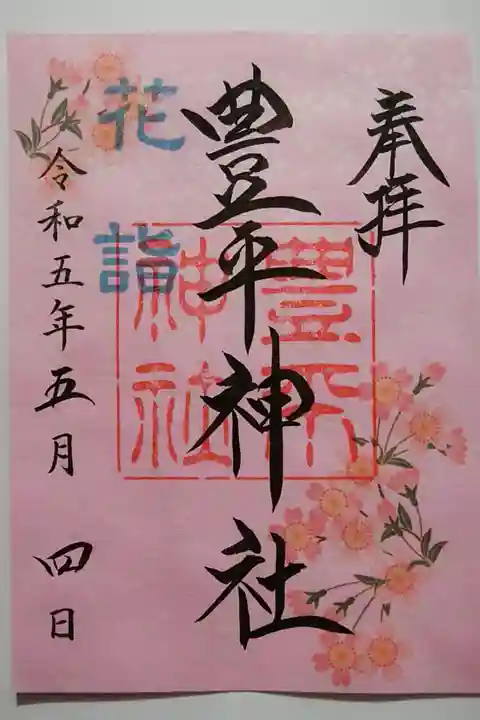 奉拝
豊平神社
豊平
神社
花詣
令和五年五月 四日